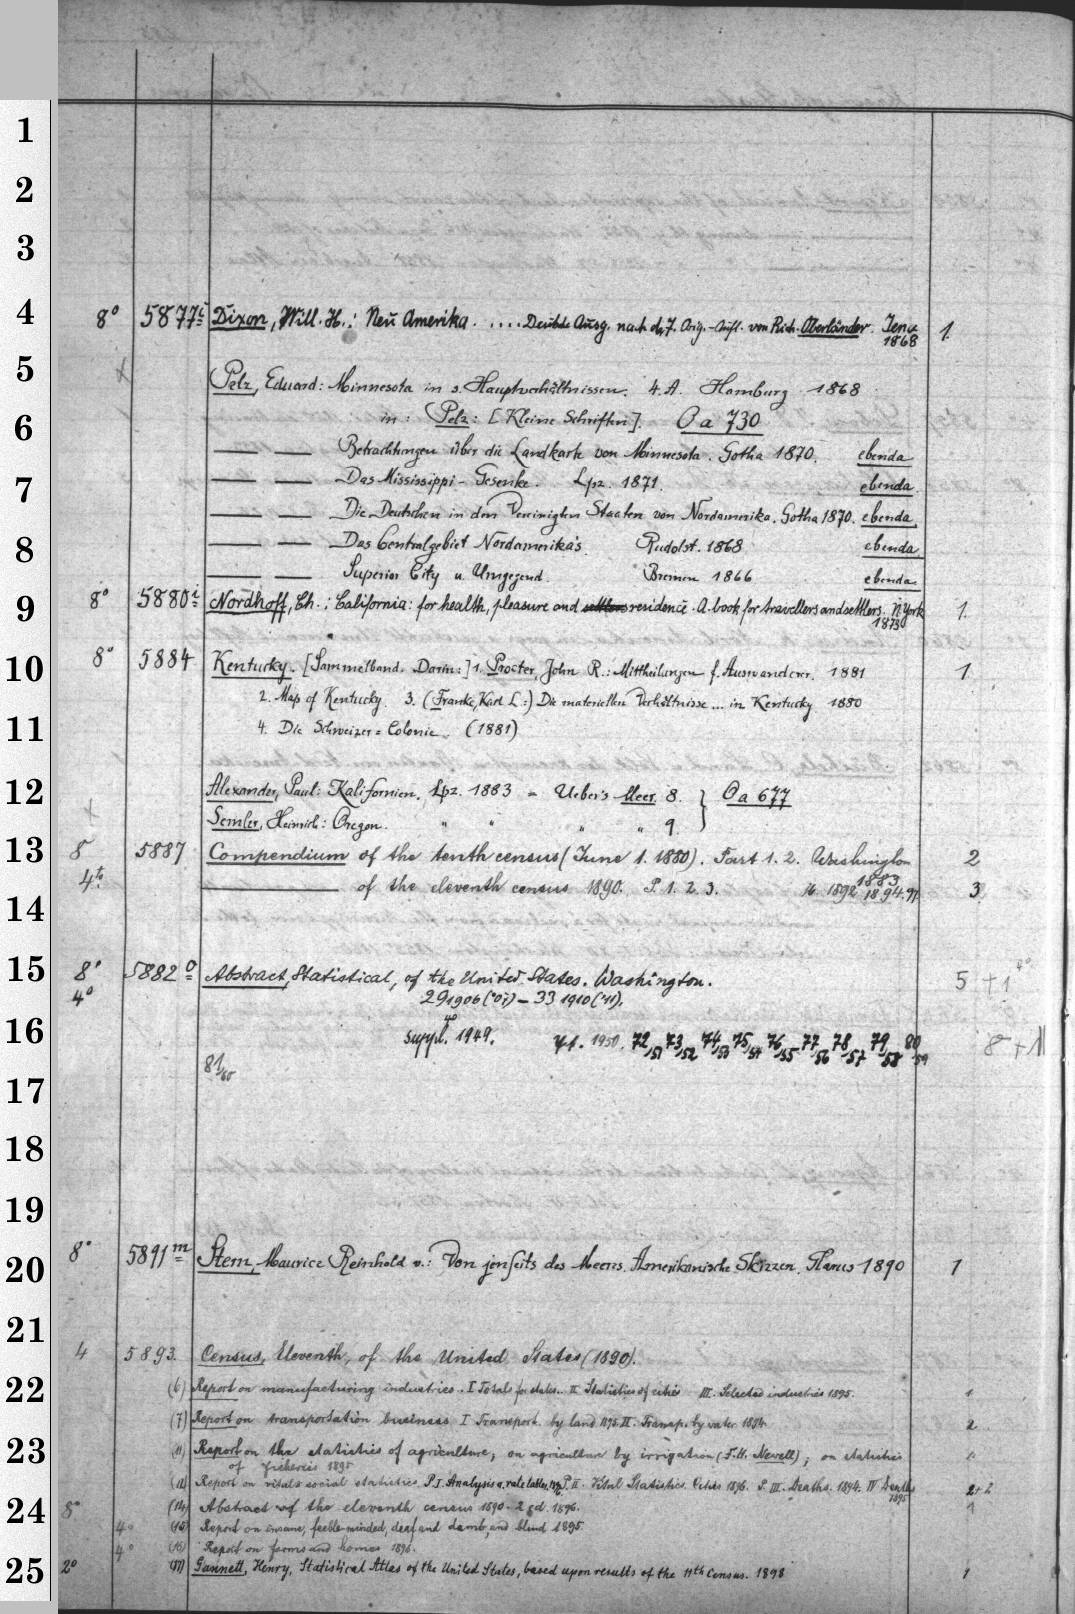 1
2
3
4 8° 5877i Dixon, Will. H.: Neu Amerika. .... Deutsche Ausg. nach d. 7. Orig.-Aufl. von Rich. Oberländer. Jena 1868 1.
5 Pelz, Eduard: Minnesota in s. Hauptverhältnissen. 4. A. Hamburg 1868
6 in: Pelz: [Kleine Schriften]. Oa 730
— — Betrachtungen über die Landkarte von Minnesota. Gotha 1870. ebenda
7 — — Das Mississippi- Lpz. 1871. ebenda
— — Die Deutschen in den Vereinigten Staaten von Nordamerika. Gotha 1870. ebenda
8 — — Das Centralgebiet Nordamerika's Rudolst. 1868 ebenda
— — Superior City u. Umgegend. Bremen 1866 ebenda
9 8° 5880i Nordhoff, Ch.: California: for health, pleasure and settlers residence. A book for travellers and settlers. N York 1873 1.
10 8° 5884 Kentucky. [Sammelband. Darin:] 1. Procter, John R.: Mittheilungen f. Auswanderer. 1881 1
2. Map of Kentucky. 3. (Franke, Karl L.:) Die materiellen Verhältnisse ... in Kentucky 1880
11 4. Die Schweizer=Colonie. (1881)
12 Alexander, Paul: Kalifornien. Lpz. 1883 = Ueber's Meer. 8. } Oa 677
Semler, Heinrich: Oregon. " " " " 9.
13 8 5887 Compendium of the tenth census (June 1. 1880). Part 1. 2. Washington 1883 2
4to. ——— of the eleventh census 1890. P. 1. 2. 3. ib. 1892 1894. 97 3
14
15 8° 5882o Abstract, Statistical, of the United States. Washington. 5 + 1
4° 29 1906 (07) – 33 1910 ('11).
16 suppl. 1949. 71. 1950. 72/51 73/52 74/53 75/54 76/55 77/56 78/57 79/58 80/59 8 + 11
81/60
17
18
19
20 8° 5891m Stern, Maurice Reinhold v.: Von jenseits des Meeres. Amerikanische Skizzen. Glarus 1890 1
21
4 5893. Census, Eleventh, of the United States (1890).
22 (6) Report on manufacturing industries. I Totals for states. II Statistics of cities III. Selected industries 1895. 1
(7) Report on transportation business I Transport. by land 1895. II. Transp. by water 1894. 2
23 (11) Report on the statistics of agriculture, on agriculture by irrigation (F. H. Newell), on statistics 1
of fisheries 1895
(12) Report on vital & social statistics P. I Analysis a. rate tables, P. II. Vital Statistics. Cities 1896. P. III. Deaths. 1894. IV Deaths 1895 2+2
24 8° (14) Abstract of the eleventh census 1890. 2 ed. 1896. 1
4° (15) Report on insane, feeble-minded, deaf and dumb, and blind 1895.
4° (16) Report on farms and homes 1896.
25 2° (17) Gannett, Henry, Statistical Atlas of the United States, based upon results of the 11th Census. 1898 1